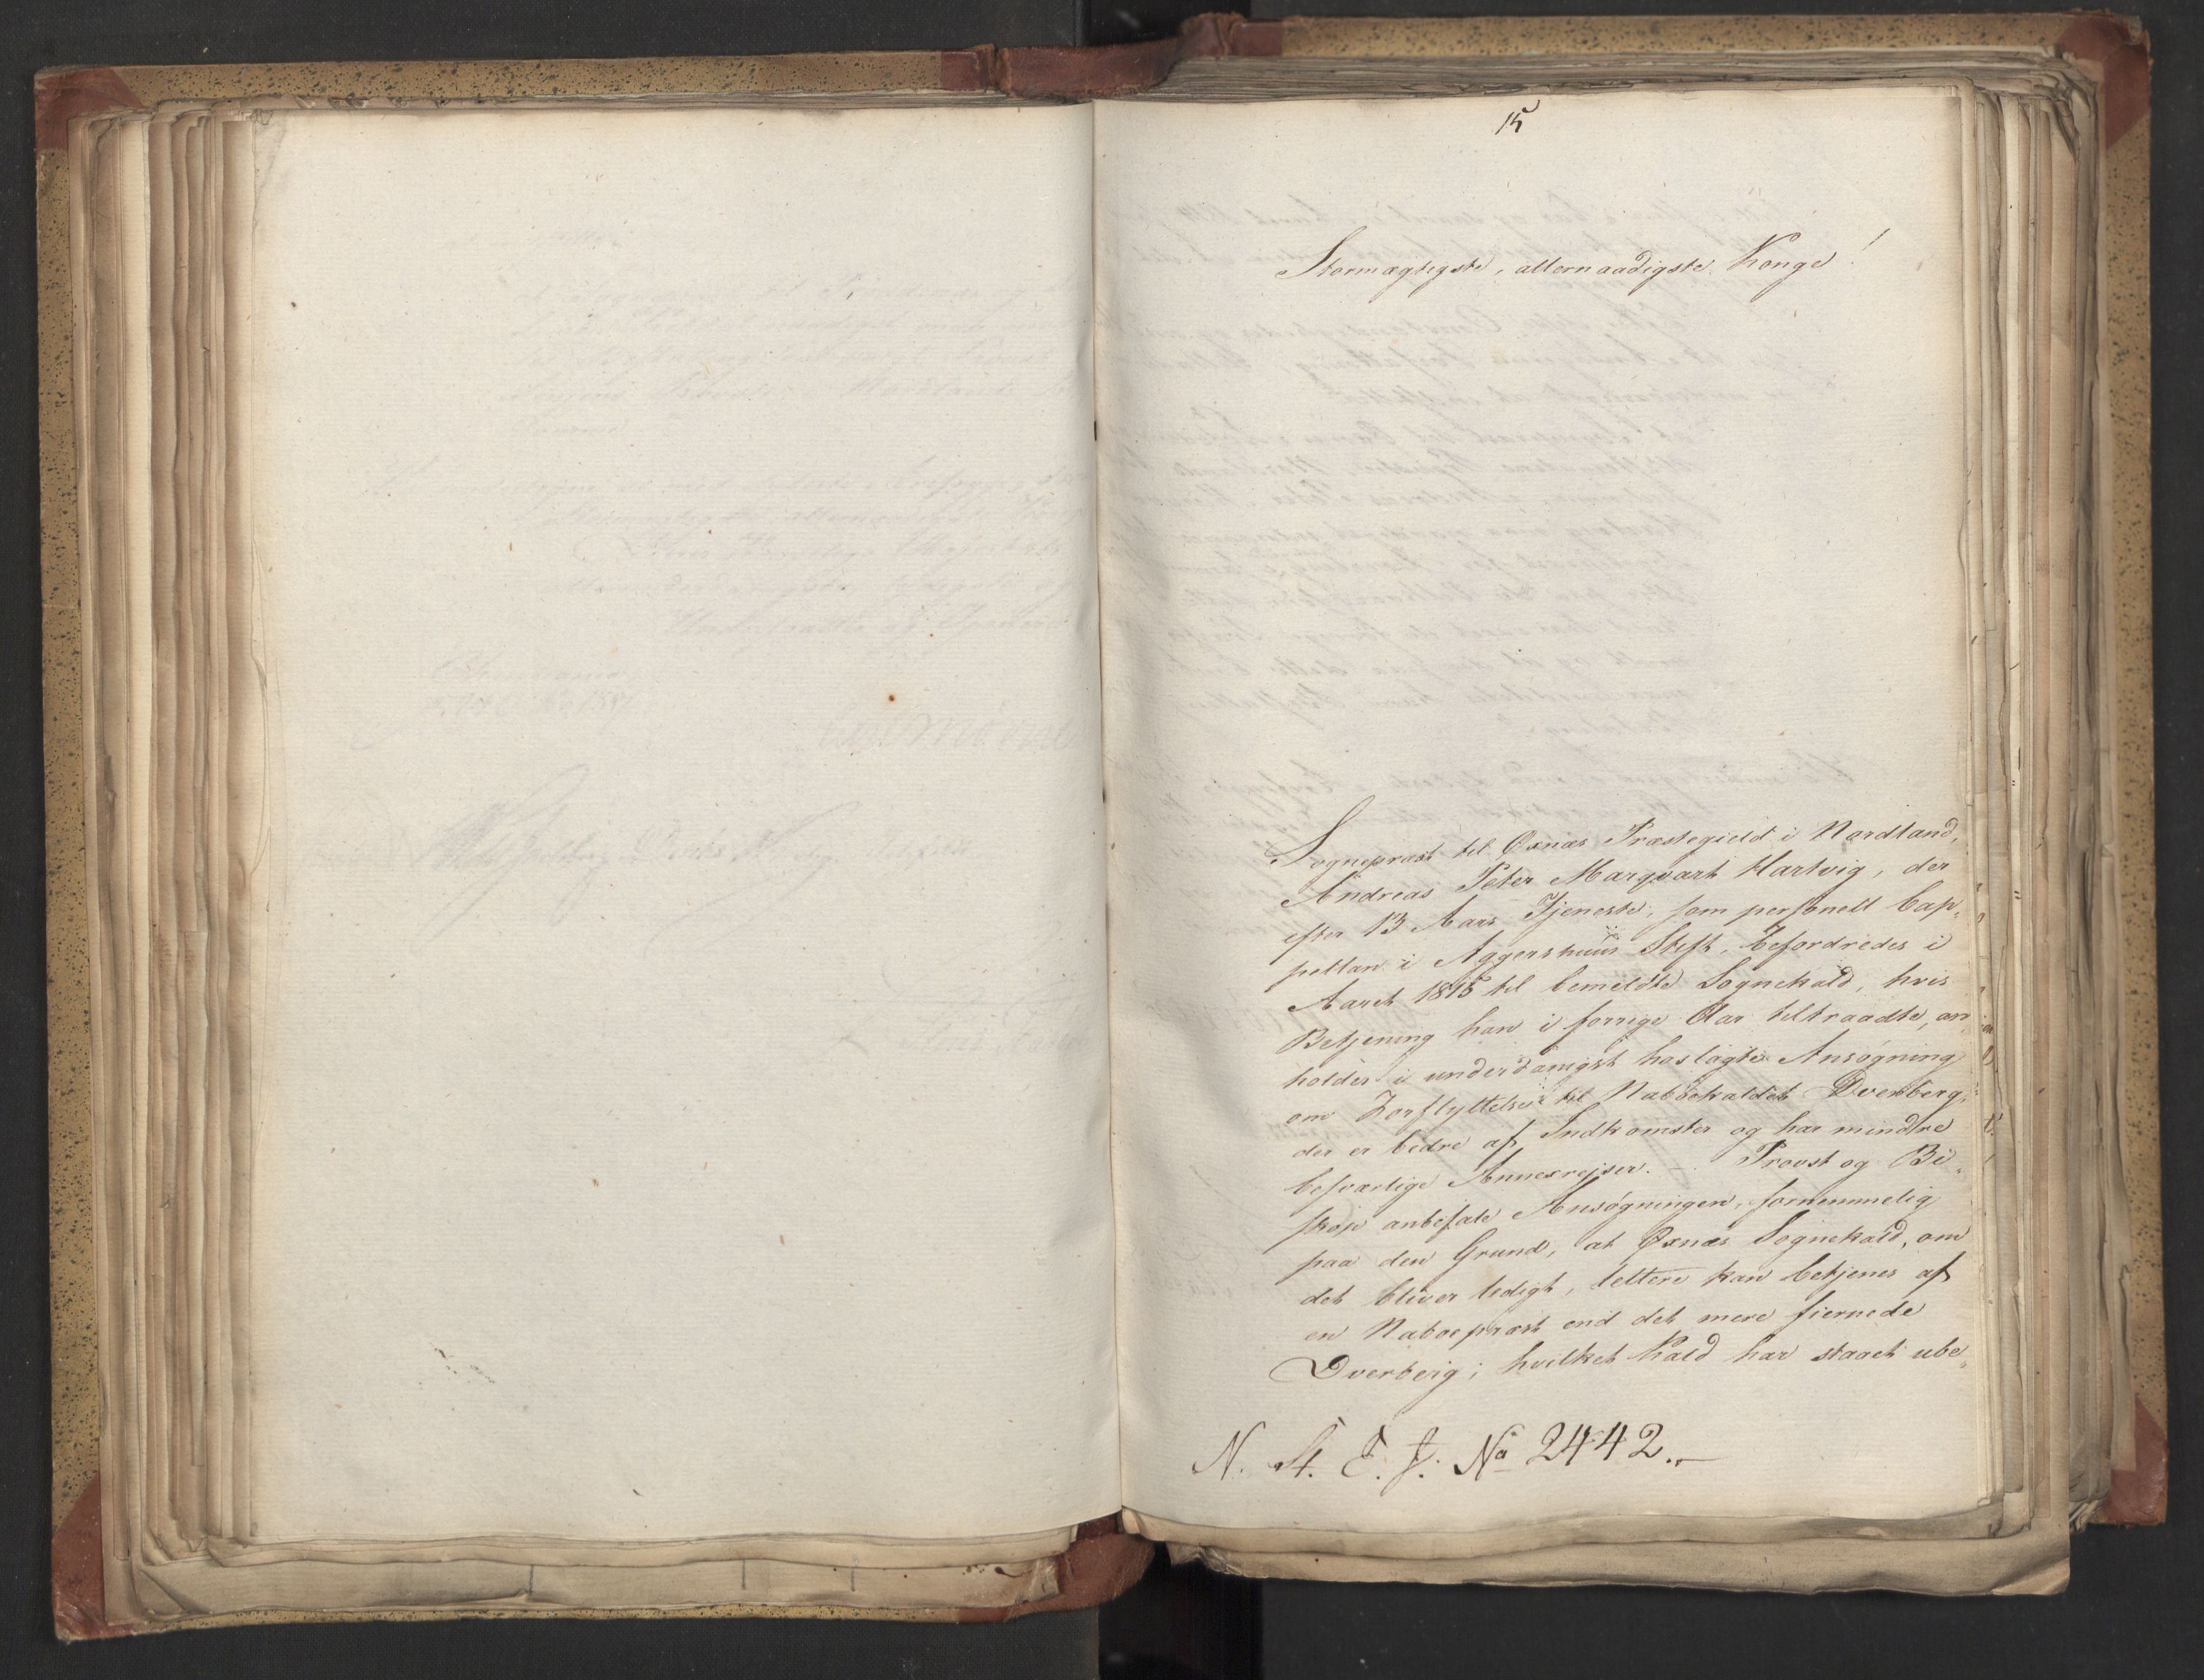 15
Stormægtigste, allernaadigste Konge!
Sognepræst til Øxnæs Præstegield i Nordland,
Andreas Peter Marqvart Hartvig, der
efter 13 Aars Tjeneste, som personell Cap„
pellan i Aggershuus Stift, befordredes i
Aaret 1815 til bemeldte Sognekald, hvis
Betjening han i forrige Aar tiltraadte, an„
holder i underdanigst hoslagte Ansøgning
om Forflyttelse til Nabokaldet Dverberg,
der er bedre af Indkomster og har mindre
besværlige Annexrejser. – Provst og Bi„
skop anbefale Ansøgningen, fornemmelig
paa den Grund, at Øxnæs Sognekald, om
det bliver ledigt, lettere kan betjenes af
en Naboepræst end det mere fiernede
Dverberg; hvilket Kald har staaet ube„
N. St. E. J. No 2442.–